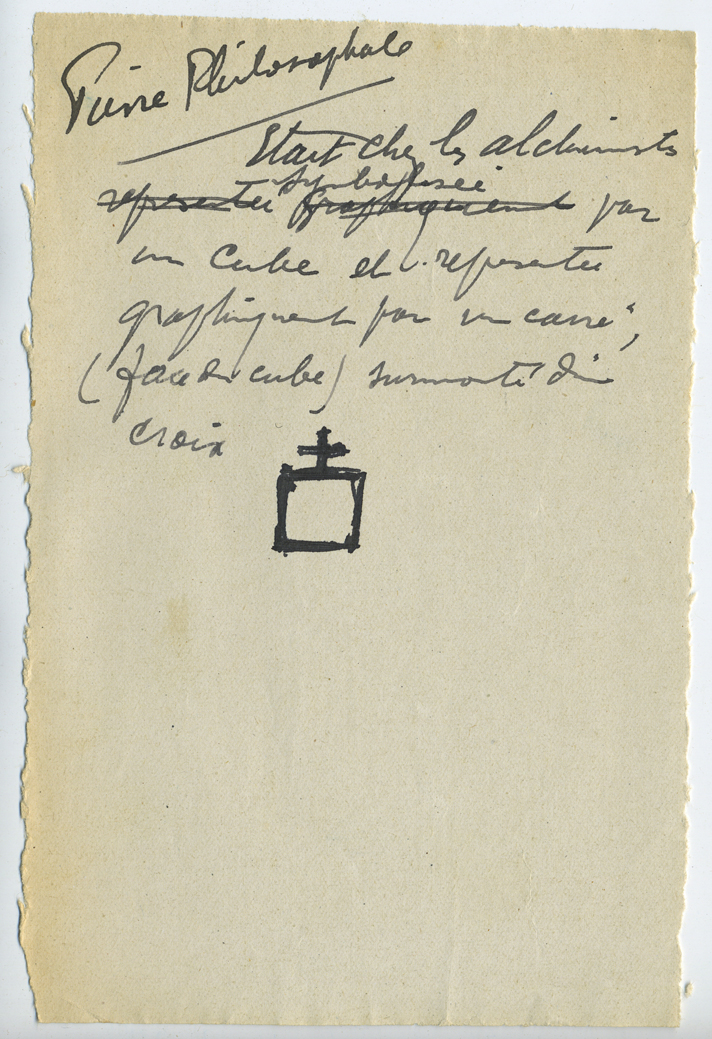 Pierre Philosophale
Etait chez les alchimistes
symbolisée
representée graphiquement par
un cube et representée
graphiquement par un carré,
(face du cube) surmonté d'un
croix